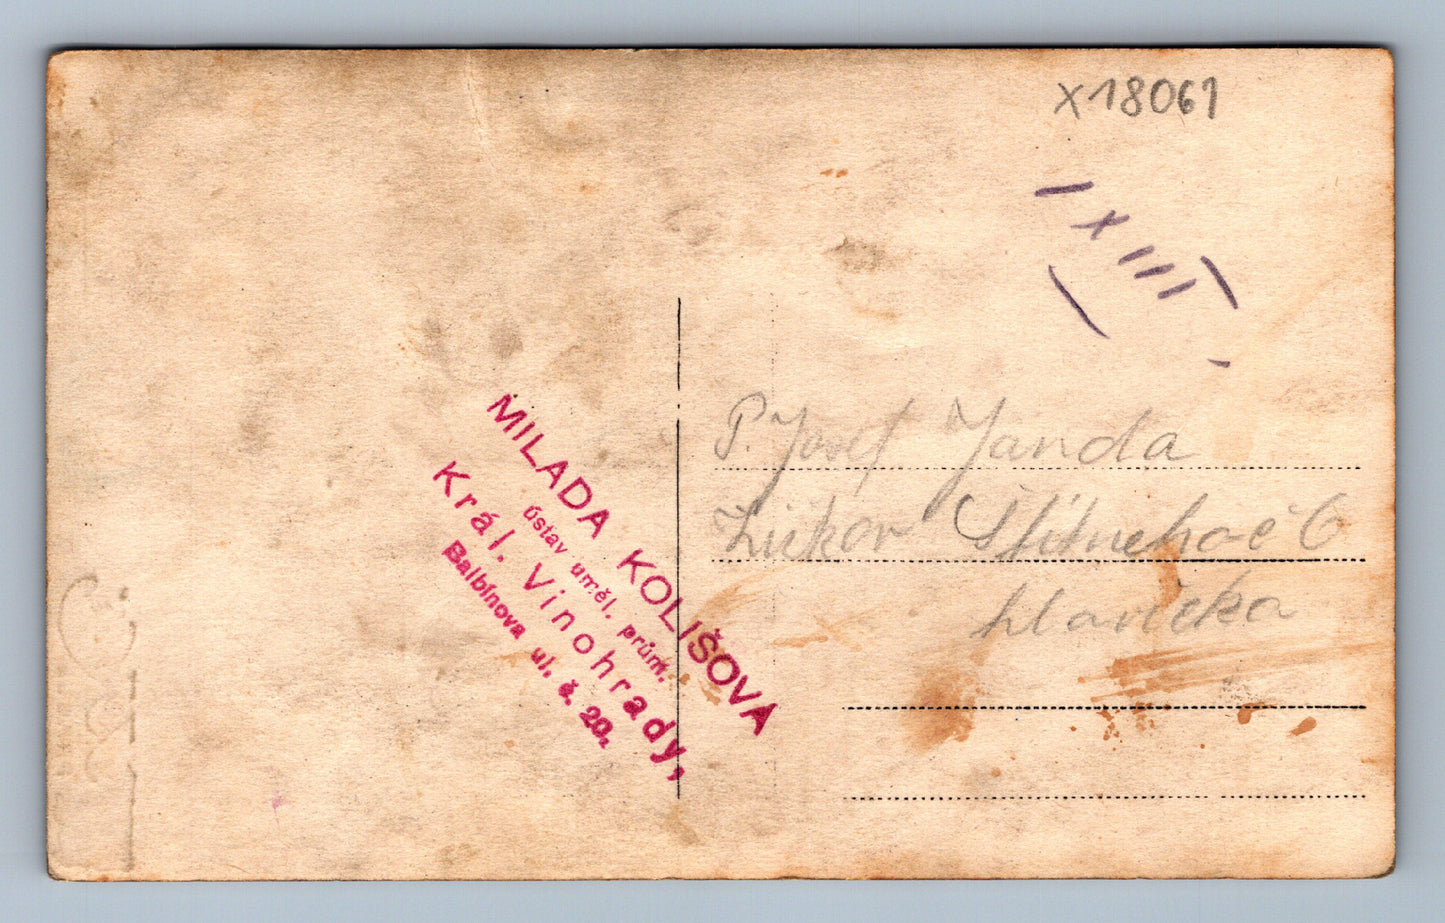 x18061
IXIII
MILADA KOLIŠOVA
ústav uměl. prům.
Král. Vinohrady,
Balbínova ul. č. 20.
P. Josef Janda
Žižkov Štítneho č 6
hlavička